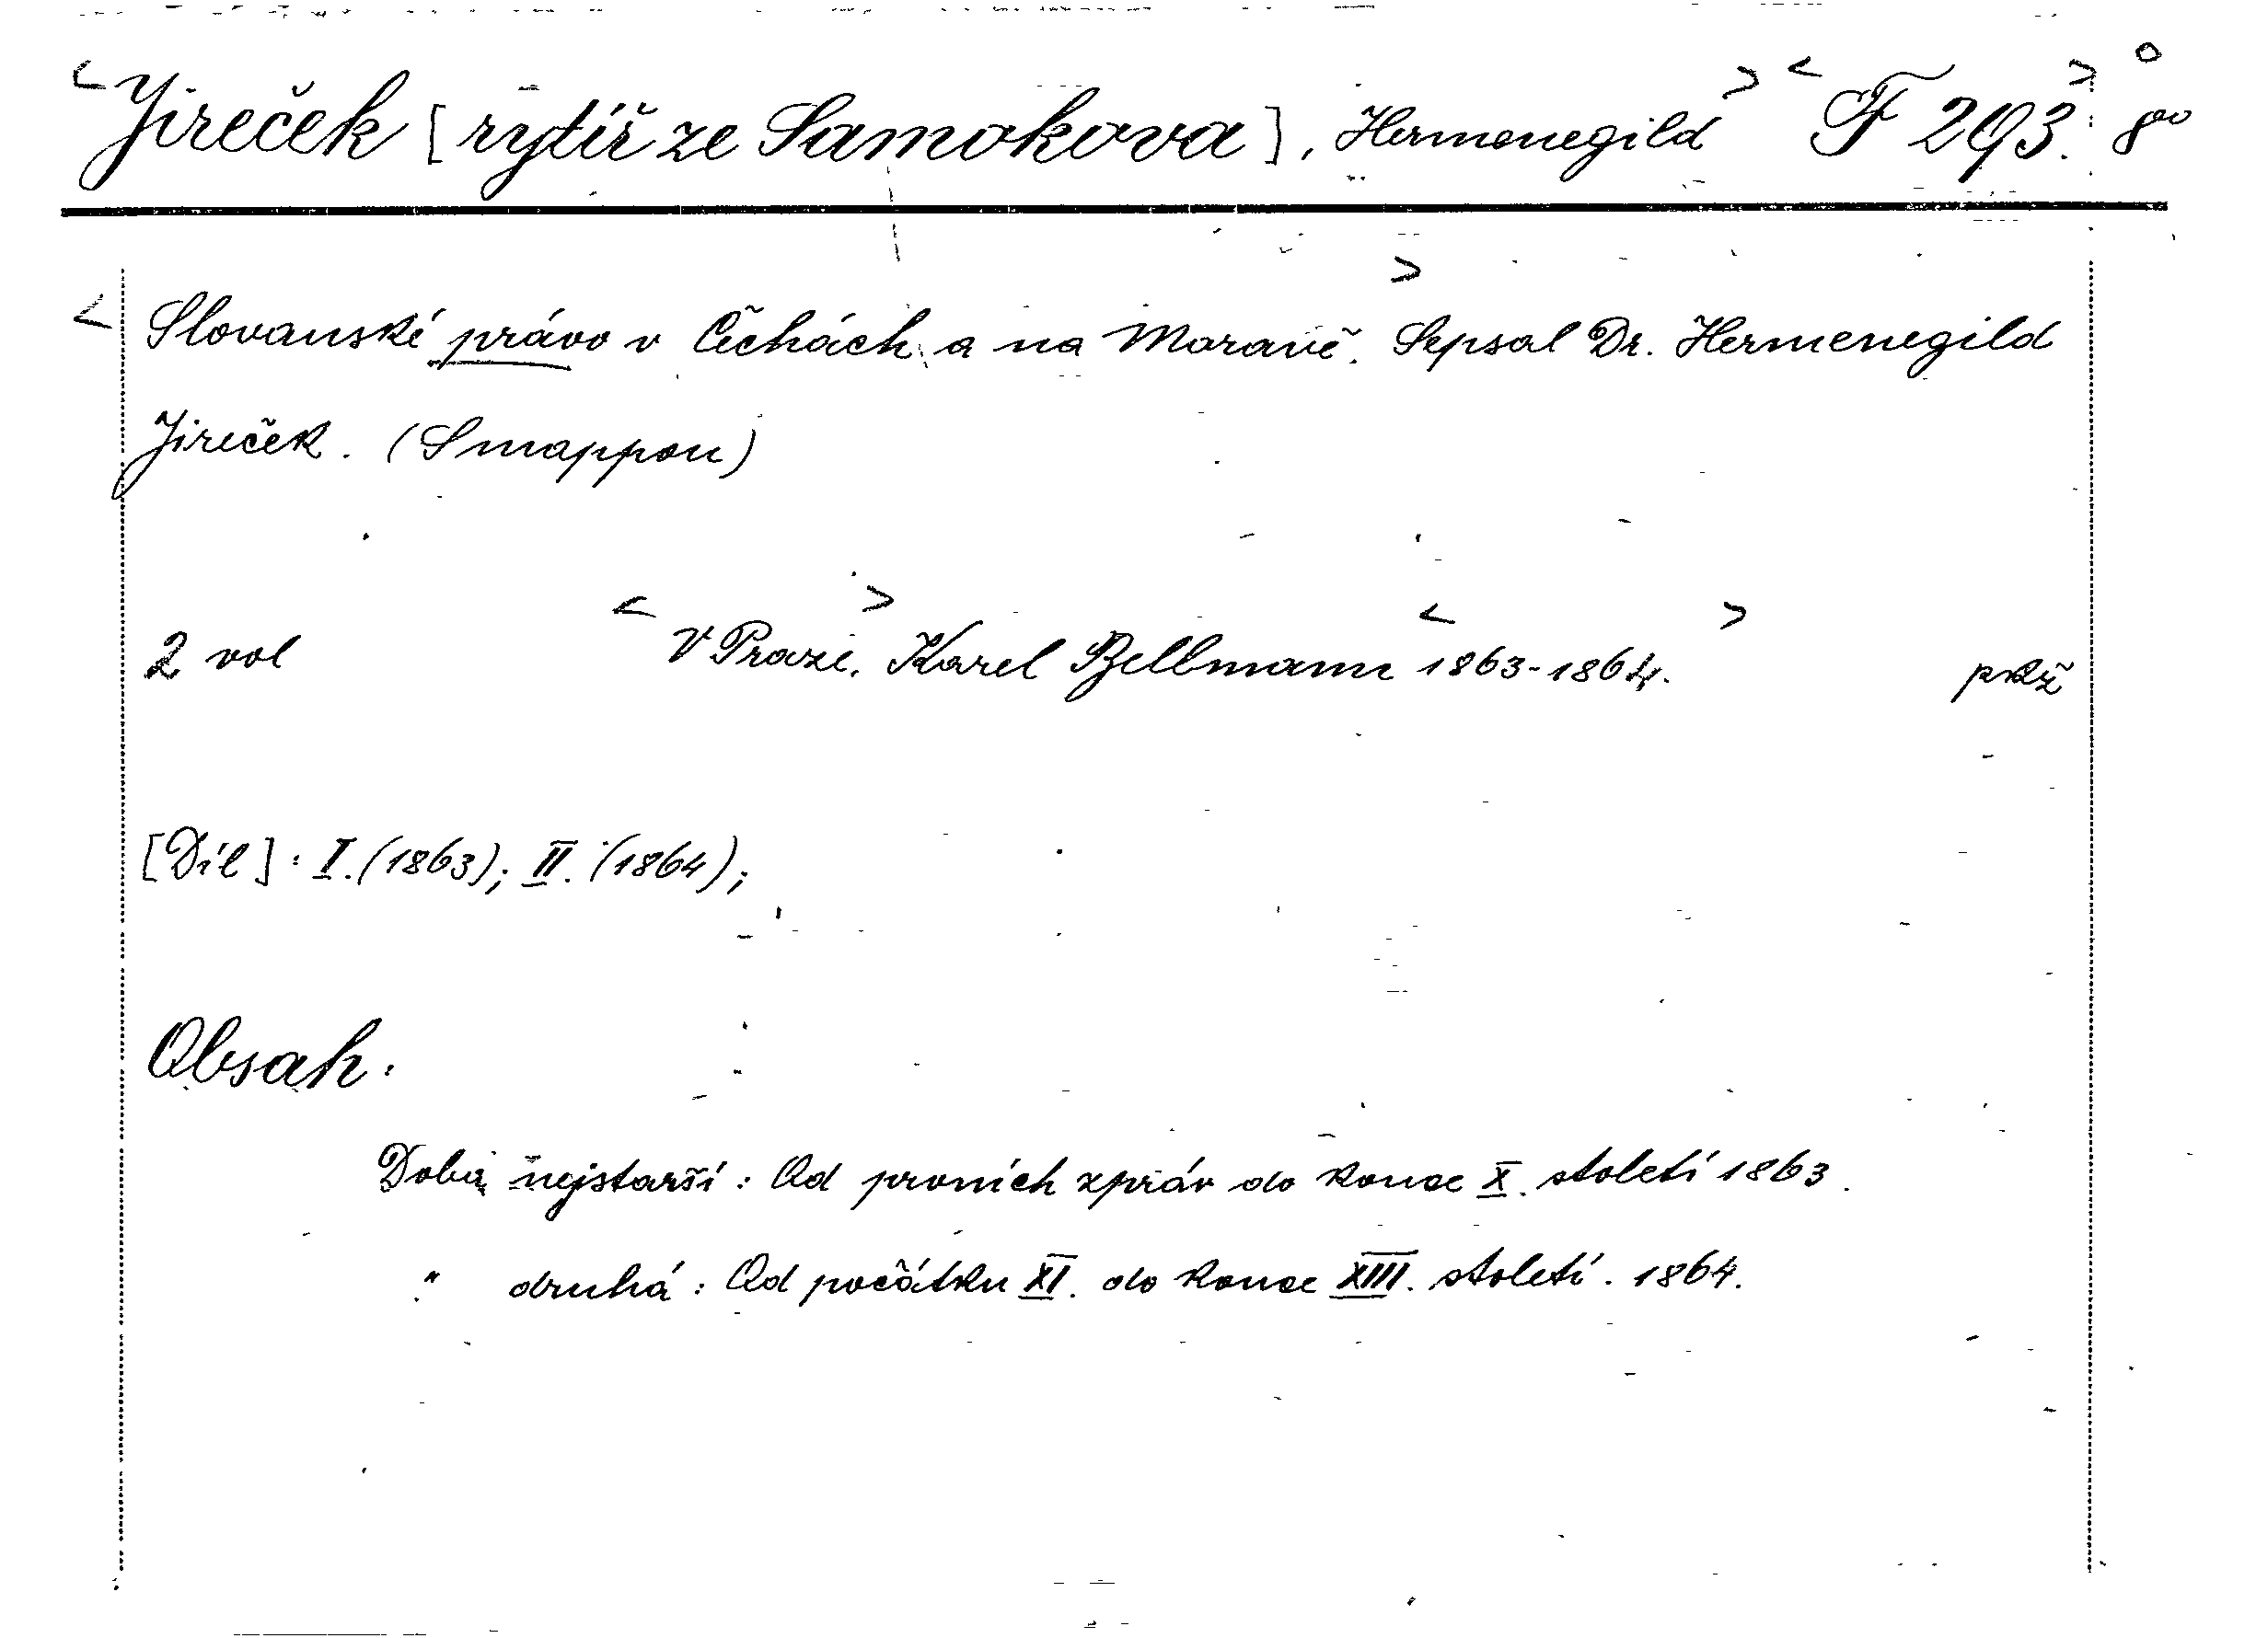 <Jireček [rytíř ze Samokova], Hermenegild> <F 293.> 8°
<Slovanské právo v Čechách a na Moravě.> Sepsal Dr. Hermenegild
Jireček. (S mappou)
2 vol <V Praze.> Karel Bellmann <1863-1864.> pkž
[Díl]: I. (1863); II. (1864);
Obsah:
Doba nejstarší: Od prvních zpráv do konce X. století 1863.
" druhá: Od počátku XI. do konce XIII. století. 1864.